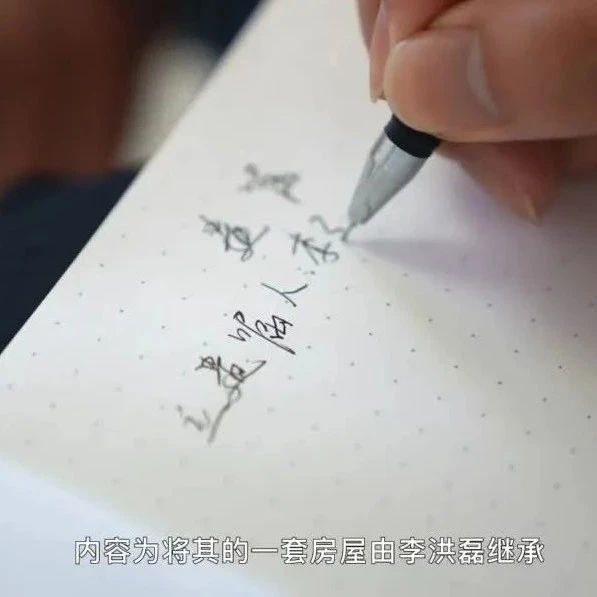 遗嘱
立遗嘱人:李
内容为将其的一套房屋由李洪磊继承